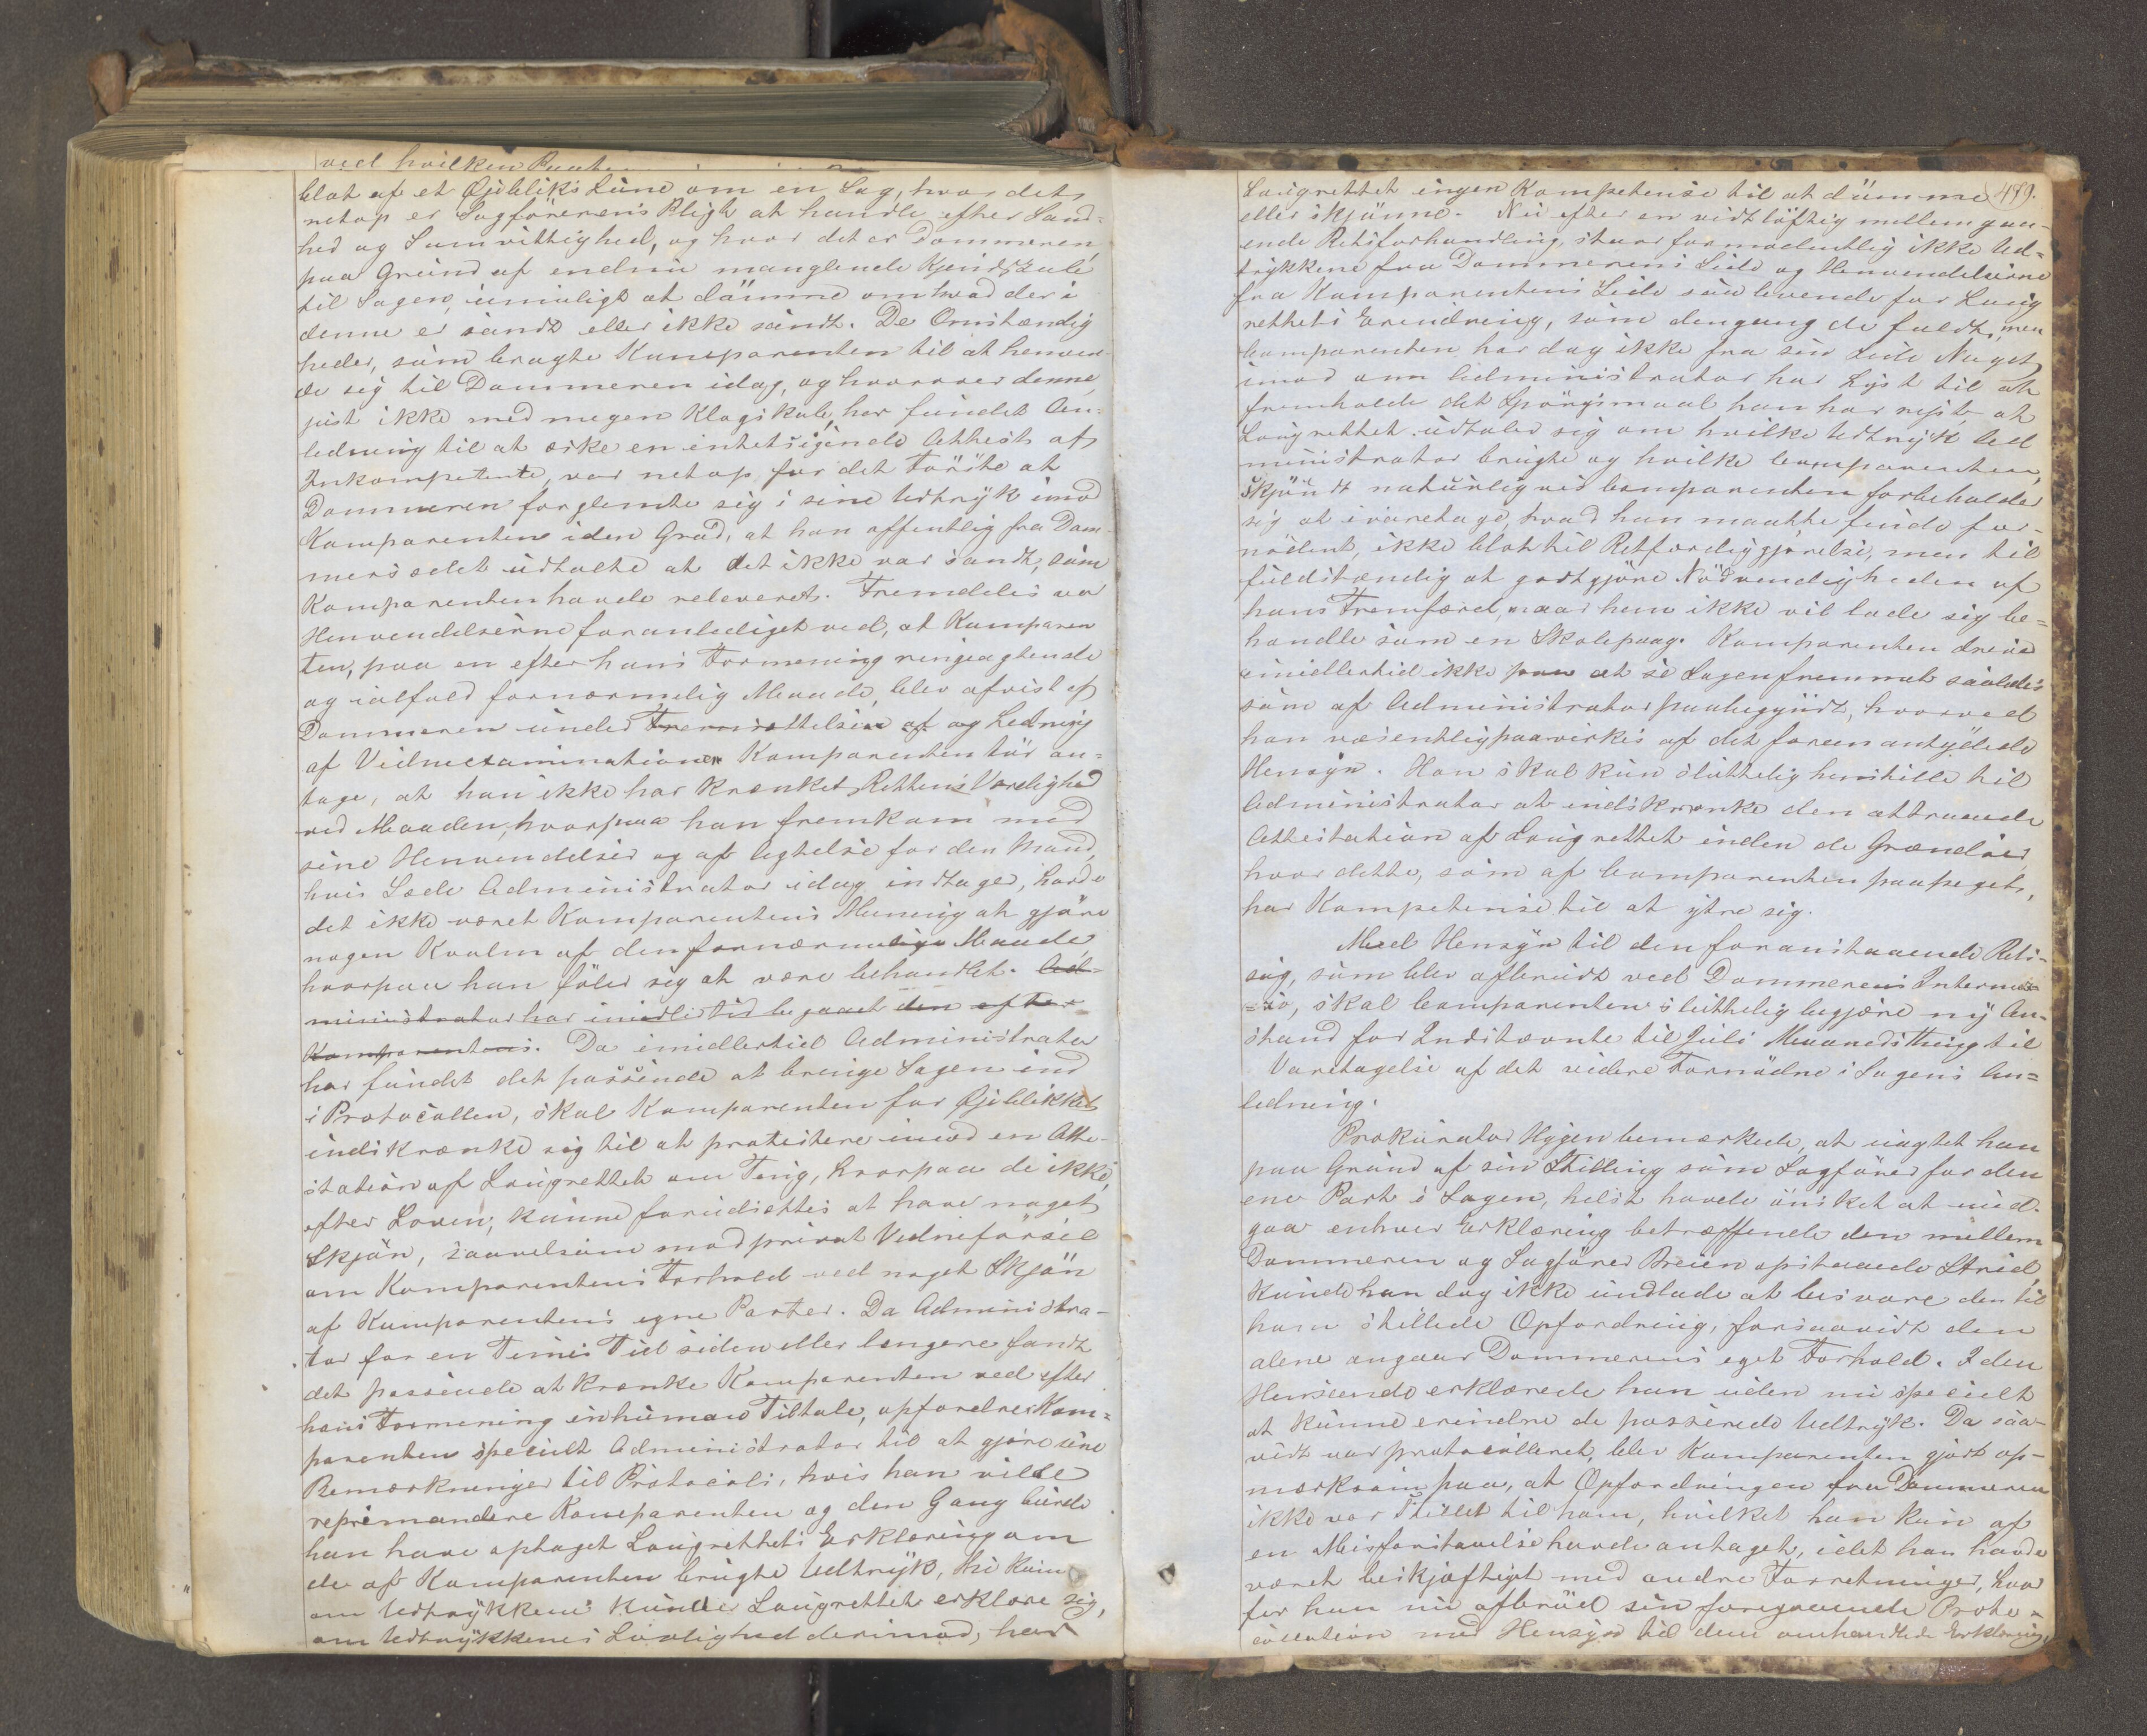 ved hvilken
blot af et Øjebliks Lune om en Sag, hvor det
netop er Sagförerens Pligt at handle efter Sand-
hed og Samvittighed, og hvor det er Dommeren,
paa Grund af endnu manglende Kjendskab
til Sagen, umuligt at dömme om hvad der i
denne er sandt eller ikke sandt. De Omstændig
heder, som bragte Komparenten til at henven-
de sig til Dommeren idag, og hvorover denne,
just ikke med megen Klogskab, har fundet An-
ledning til at æske en intetsigende Attest af
Inkompetente, var netop for det Förste at
Dommeren forglemte sig i sine Udtryk imod
Komparenten i den Grad, at han offentlig fra Dom-
mersædet udtalte at det ikke var sandt, som
Komparenten havde releveret. Fremdeles var
Henvendelserne foranlediget ved, at Komparen
ten, paa en efter hans Formening ringeagtende
og ialfald fornærmelig Maade, blev afvist af
Dommeren under Fremsættelsen af og Ledning
af Vidneexaminationen Komparenten tör an-
tage, at han ikke har krænket Rettens Værdighed
ved Maaden, hvorpaa han fremkom med
sine Henvendelser og af Agtelse for den Mand,
hvis Sæde Administrator idag indtager, havde
det ikke været Komparentens Mening at gjöre
nogen Kvalm af den fornærmelige Maade
hvorpaa han föler sig at være behandlet. Ad-
ministrator har imidlertid begaaet den efter
Komparentens. Da imidlertid Administrator
har fundet det passende at bringe Sagen ind
i Protocollen, skal Komparenten for Øjeblikket
indskrænke sig til at protestere imod en Atte-
station af Laugrettet om Ting, hvorpaa de ikke,
efter Loven, kunne forudsættes at have noget
Skjön, saavelsom mod privat Vidneförsel
om Komparentens Forhold ved noget Skjön
af Komparentens egne Parter. Da Administra-
tor for en Times Tid siden eller længere fandt
det passende at krænke Komparenten ved efter
hans Formening inhuman Tiltale, opfordrer Kom-
parenten specielt Administrator til at gjöre sine
Bemærkninger til Protocols, hvis han vilde
reprimandere Komparenten og den Gang burde
han have optaget Laugrettets Erklæring om
de af Komparenten brugte Udtryk, thi kun
om Udtrykkene kunde Laugrettet erklære sig,
om Udtrykkenes Lovlighed derimod, har
489.
Laugrettet ingen Kompetense til at dömme
eller skjönne. Nu efter en vidtlöftig mellemgaa-
ende Retsforhandling, staar formodentlig ikke Ud-
trykkene fra Dommerens Side og Henvendelserne
fra Komparentens Side saa levende for Laug
rettets Erindring, som dengang de faldt, men
Comparenten har dog ikke fra sin Side Noget
imod om Administrator har Lyst til at
fremholde det Spörgsmaal han har rejst, at
Laugrettet udtaler sig om hvilke Udtryk Ad
ministrator brugte og hvilke Comparenten,
Skjöndt naturligvis Comparenten forbeholder
sig at ivaretage, hvad han maatte finde for-
nödent, ikke blot til Retfærdiggjörelse, men til
fuldstændig at godtgjöre Nödvendigheden af
hans Fremfærd, naar han ikke vil lade sig be-
handle som en Skolepaag. Komparenten
imidlertid ikke paa at se Sagen fremmet saaledes
som af Administrator paabegyndt, hvorved
han væsentlig paavirkes af det foran antydede
Hensyn. Han skal kun sluttelig henstille til
Administrator at indskrænke den attraaede
Attestation af Laugrettet inden de Grændser
hvor dette, som af Comparenten paapeget,
har Kompetense til at ytre sig.
Med Hensyn til den foranstaaende Rets-
sag, som blev afbrudt ved Dommerens Intermes-
so, skal Comparenten sluttelig begjære ny An-
stand for Indstævnte til Juli Maanedsthing til
Varetagelse af det videre Fornödne i Sagens An-
ledning.
Prokurator Hygen bemærkede, at uagtet han
paa Grund af sin Stilling som Sagförer for den
ene Part i Sagen, helst havde önsket at und-
gaa enhver Erklæring betræffende den mellem
Dommeren og Sagförer Breien opstaaede Strid,
kunde han dog ikke undlade at besvare den til
ham stillede Opfordring, forsaavidt den
alene angaar Dommerens eget Forhold. I den
Henseende erklærede han uden nu specielt
at kunne erindre de passerede Udtryk. Da saa-
vidt var protocolleret, blev Komparenten gjort op-
mærksom paa, at Opfordringen fra Dommeren
ikke var stillet til ham, hvilket han kun af
en Misforstaaelse havde antaget, idet han havde
været beskjæftiget med andre Forretninger, hvor
for han nu afbröd sin foregaaende Proto-
collation med Hensyn til den omhandlede Erklæring,